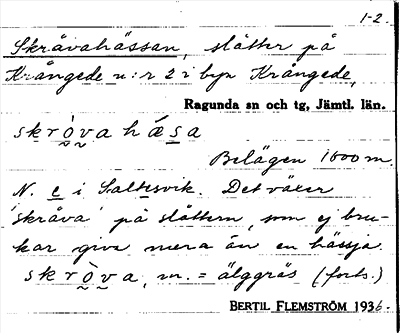 1-2.
Skråvahässan, slåtter på
Krångede n:r 2 i byn Krångede,
Ragunda sn och tg, Jämtl. län.
skròvahæsa
Belägen 1600 m
N. e i Saltesvik. Det växer
'skråva' på slåttern, som ej bru-
kar giva mera än en hässja.
skròva, m. = älggräs (forts.)
BERTIL FLEMSTRÖM 1936.